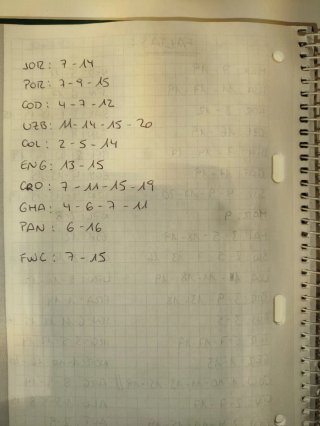 JOR: 7-14
POR: 7-9-15
COD: 4-7-12
UZB: 11-14-15-20
COL: 2-5-14
ENG: 13-15
CRO: 7-11-15-19
GHA: 4-6-7-11
PAN: 6-16
FWC: 7-15